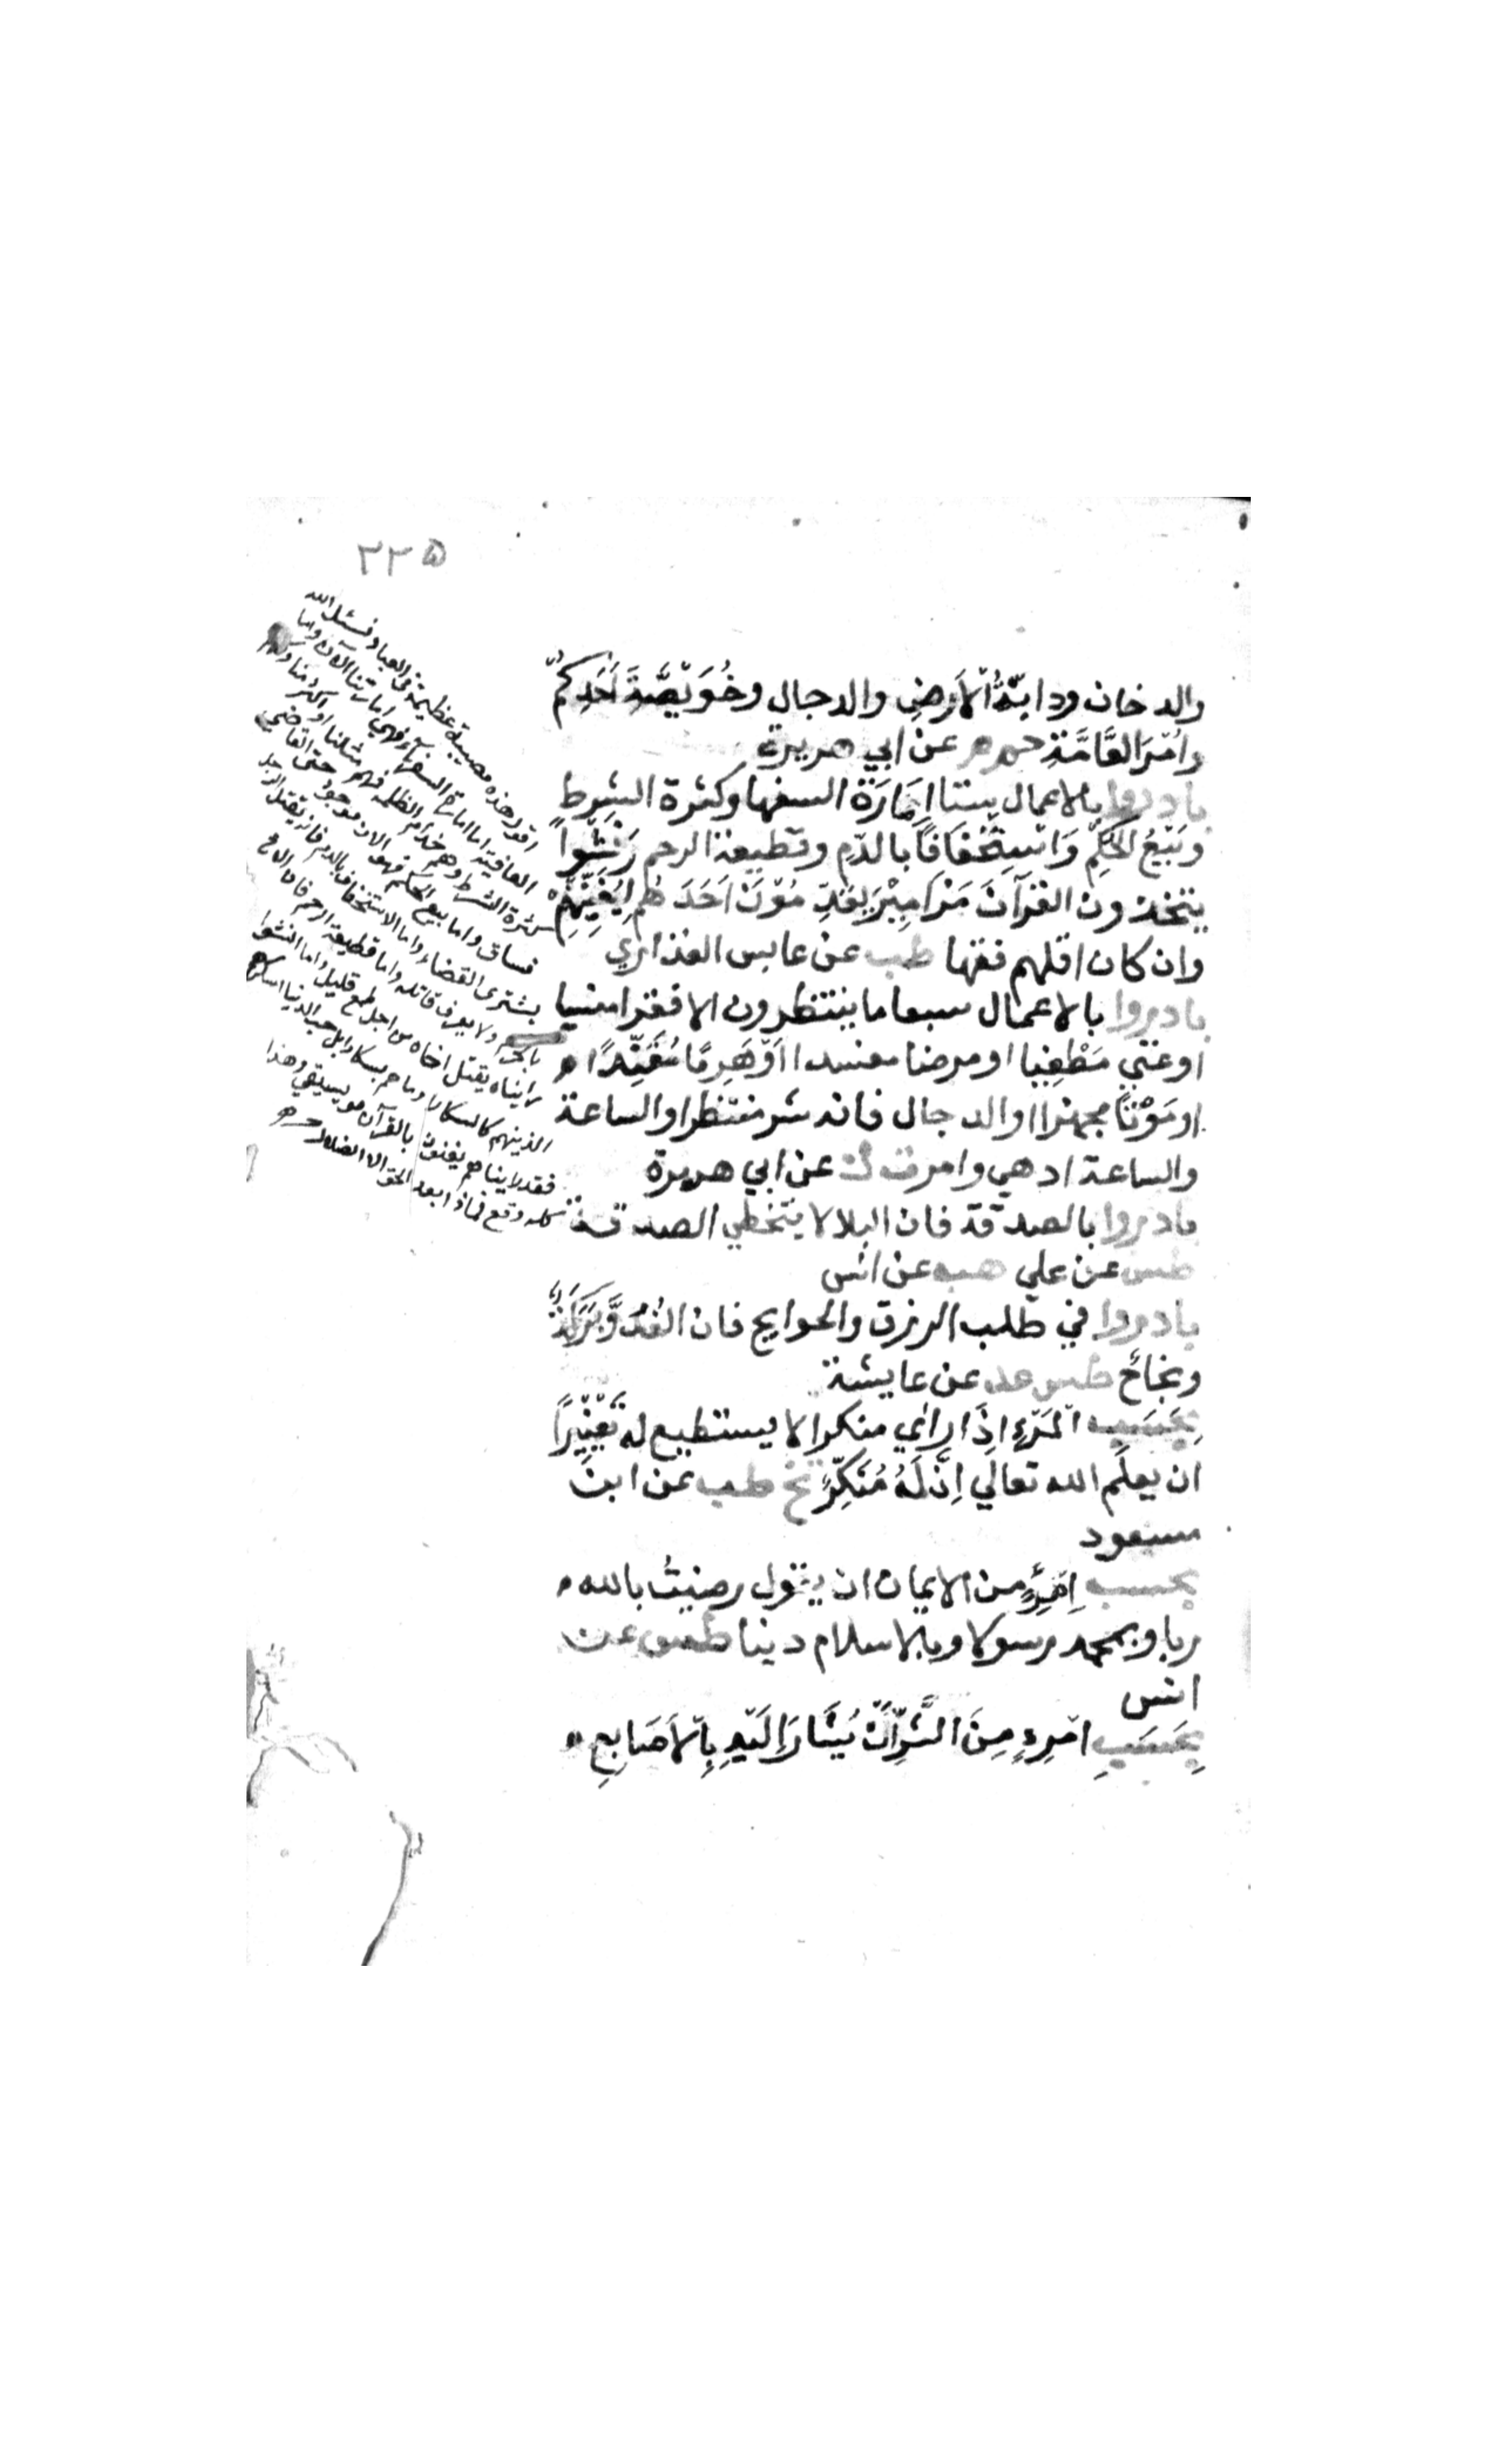 ٢٢٥
والدخان ودابّةُ الأَرضِ والدجال وخُوَيْصَّةَ أَحَدِكُمْ
وأمْرَ العَامَّةِ حم م عن ابي هريرة
بادروا بالاعمال ستا إمَارَةَ السفها وكثرة الشرط
وبَيْعُ الحُكْمِ وَاسْتِخْفَافًا بالدَّمِ وقطيعة الرحم ونَشْواً
يتخذون القرآنَ مَزَامِيْرَ يقدِّمُوْنَ اَحَدَهُم لِيُغَنِّيَهُمْ
وان كان اقلهم فقها طب عن عابس الغفاري
بادروا بالاعمال سبعا ما ينتظرون الا فقرا منسيا
او غنيً مَطْغِيا او مرضا مفسدا اَوْ هَرِمًا مُفَنِّدًا
او مَوْتًا مجهزا او الدجال فانه شر منتظر او الساعة
والساعة ادهي وامر ت ك عن ابي هريرة
بادروا بالصدقة فان البلا لا يتخطي الصدقة
طس عن علي هب عن انس
بادروا في طلب الرزق والحوايج فان الغُدُوَّ بَرَكَةٌ
ونجاحٌ طس عد عن عايشة
بِحَسَبِ الْمَرْءِ اِذَا راي منكرا لا يستطيع له تَغْيِيْرًا
ان يعلم الله تعالي اِنَّهُ لَهُ مُنْكِرٌ تخ طب عن ابن
مسعود
بحسب اِمْرِءٍ من الايمان ان يقول رضيتُ بالله
ربا وبمحمد رسولا وبالاسلام دينا طس عن
انس
بِحَسَبِ امْرِءٍ مِنَ الشَّرِّ اَنْ يُشَارَ اِلَيْهِ بِالْاَصَابِعِ
اقول هذه مصيبة عظيمة في العباد فنسئل الله
العافية اما امارة السفهاء فهي امارتنا الآن واما
كثرة الشرط وهم خدام الظلمة فهم مثلنا او اكثر منا وكلهم
فساق واما بيع الحكم فهو الان موجود حتى القاضي
يشترى القضاء واما الاستخفاف بالدم فانه يقتل الرجل
ولا يعرف قاتله واما قطيعة الرحم فان الاخ
يقتل اخاه من اجل طمع قليل واما النشوا
الذينهم كالسكارا وما هم بسكارا بل حب الدنيا اسكرهم
فقد راينا هم يغنون بالقرآن موسيقي وهذا
كله وقع فماذا بعد الحق الا الضلال